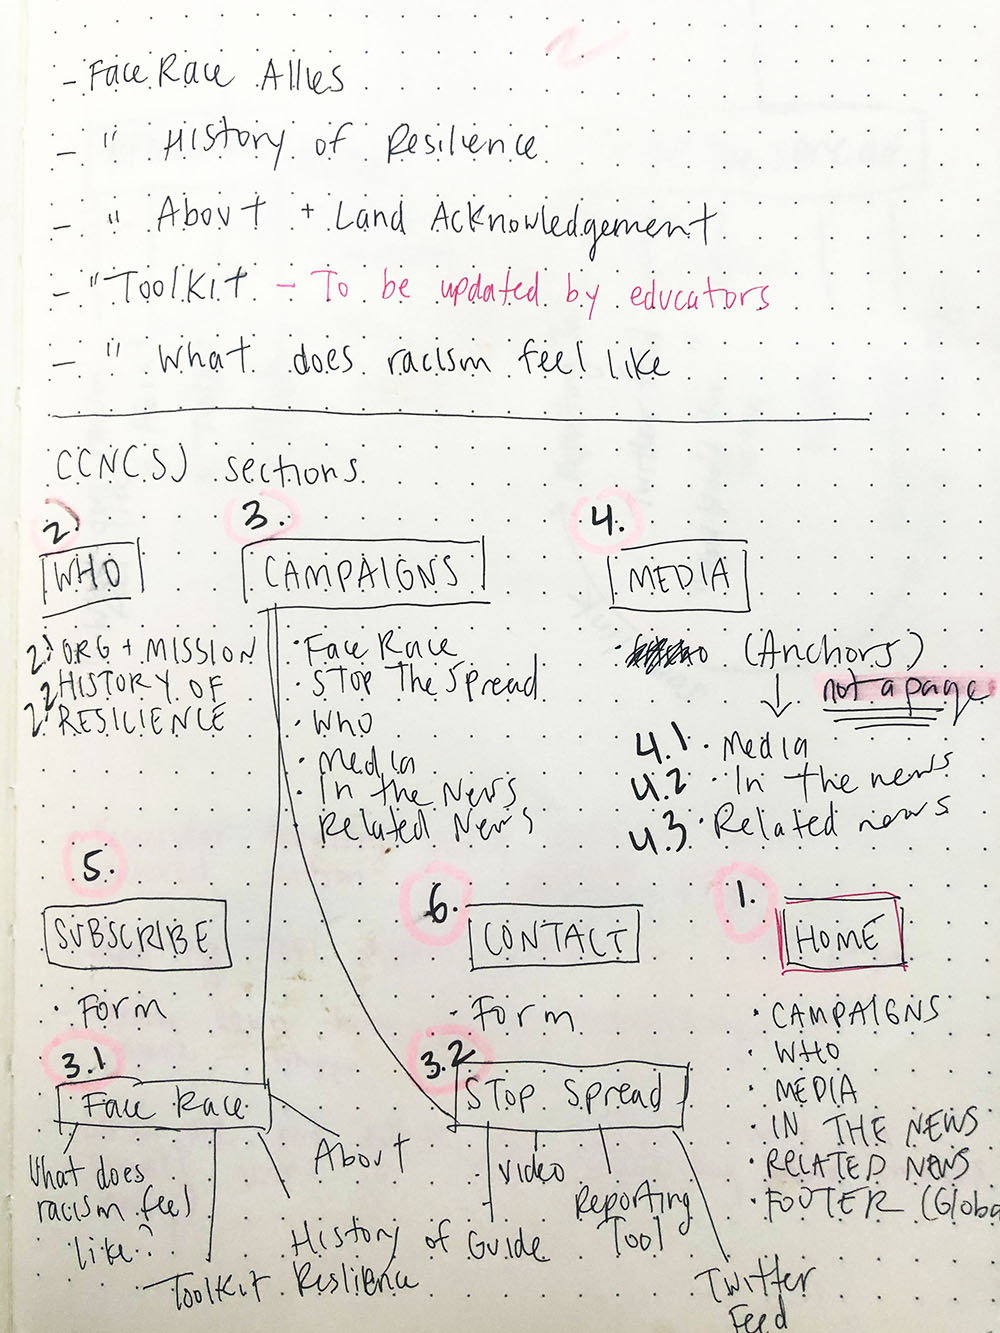 - Face Race Allies
- " History of Resilience
- " About + Land Acknowledgement
- " Toolkit - To be updated by educators
- " What does racism feel like
CCNC(SJ) sections
2)
WHO
2) ORG + MISSION
2 HISTORY OF
2) RESILIENCE
3.
CAMPAIGNS
· Face Race
· STOP The Spread
· Who
· Media
· In the News
· Related News
4.
MEDIA
· (Anchors)
↓ not a page
4.1 · Media
4.2 · In the news
4.3 · Related news
5.
SUBSCRIBE
· Form
6.
CONTACT
- Form
1.
HOME
· CAMPAIGNS
· WHO
· MEDIA
· IN THE NEWS
· RELATED NEWS
· FOOTER (Globa
3.1
Face Race
What does
racism feel
like?
Toolkit
History of
Reslience
About
3.2
STOP Spread
Guide
Video
Reporting
Tool
Twitter
Feed